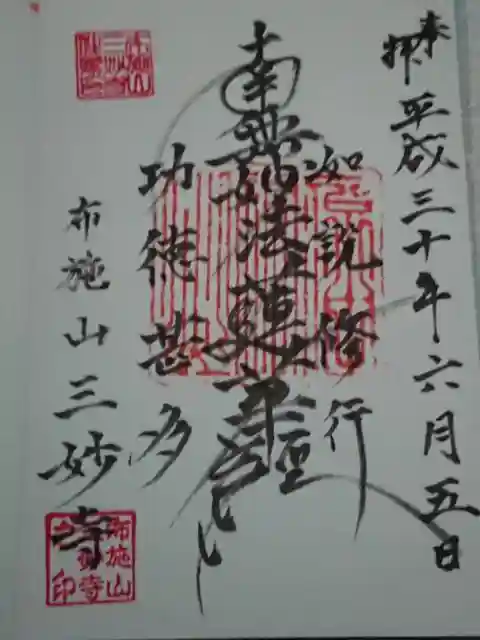 奉拝 平成三十年六月五日
如説修行
南無妙法蓮華経
功徳甚多
布施山三妙寺
布施山三妙寺印